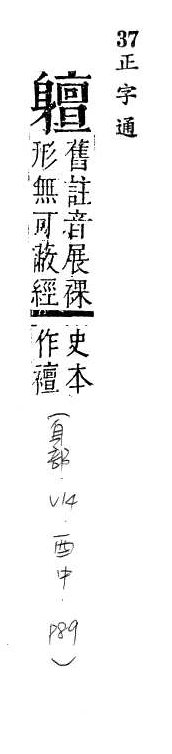 37正字通
軆舊註音展裸
形無可蔽經史本
作襢
(身部.V14.酉中.P89)